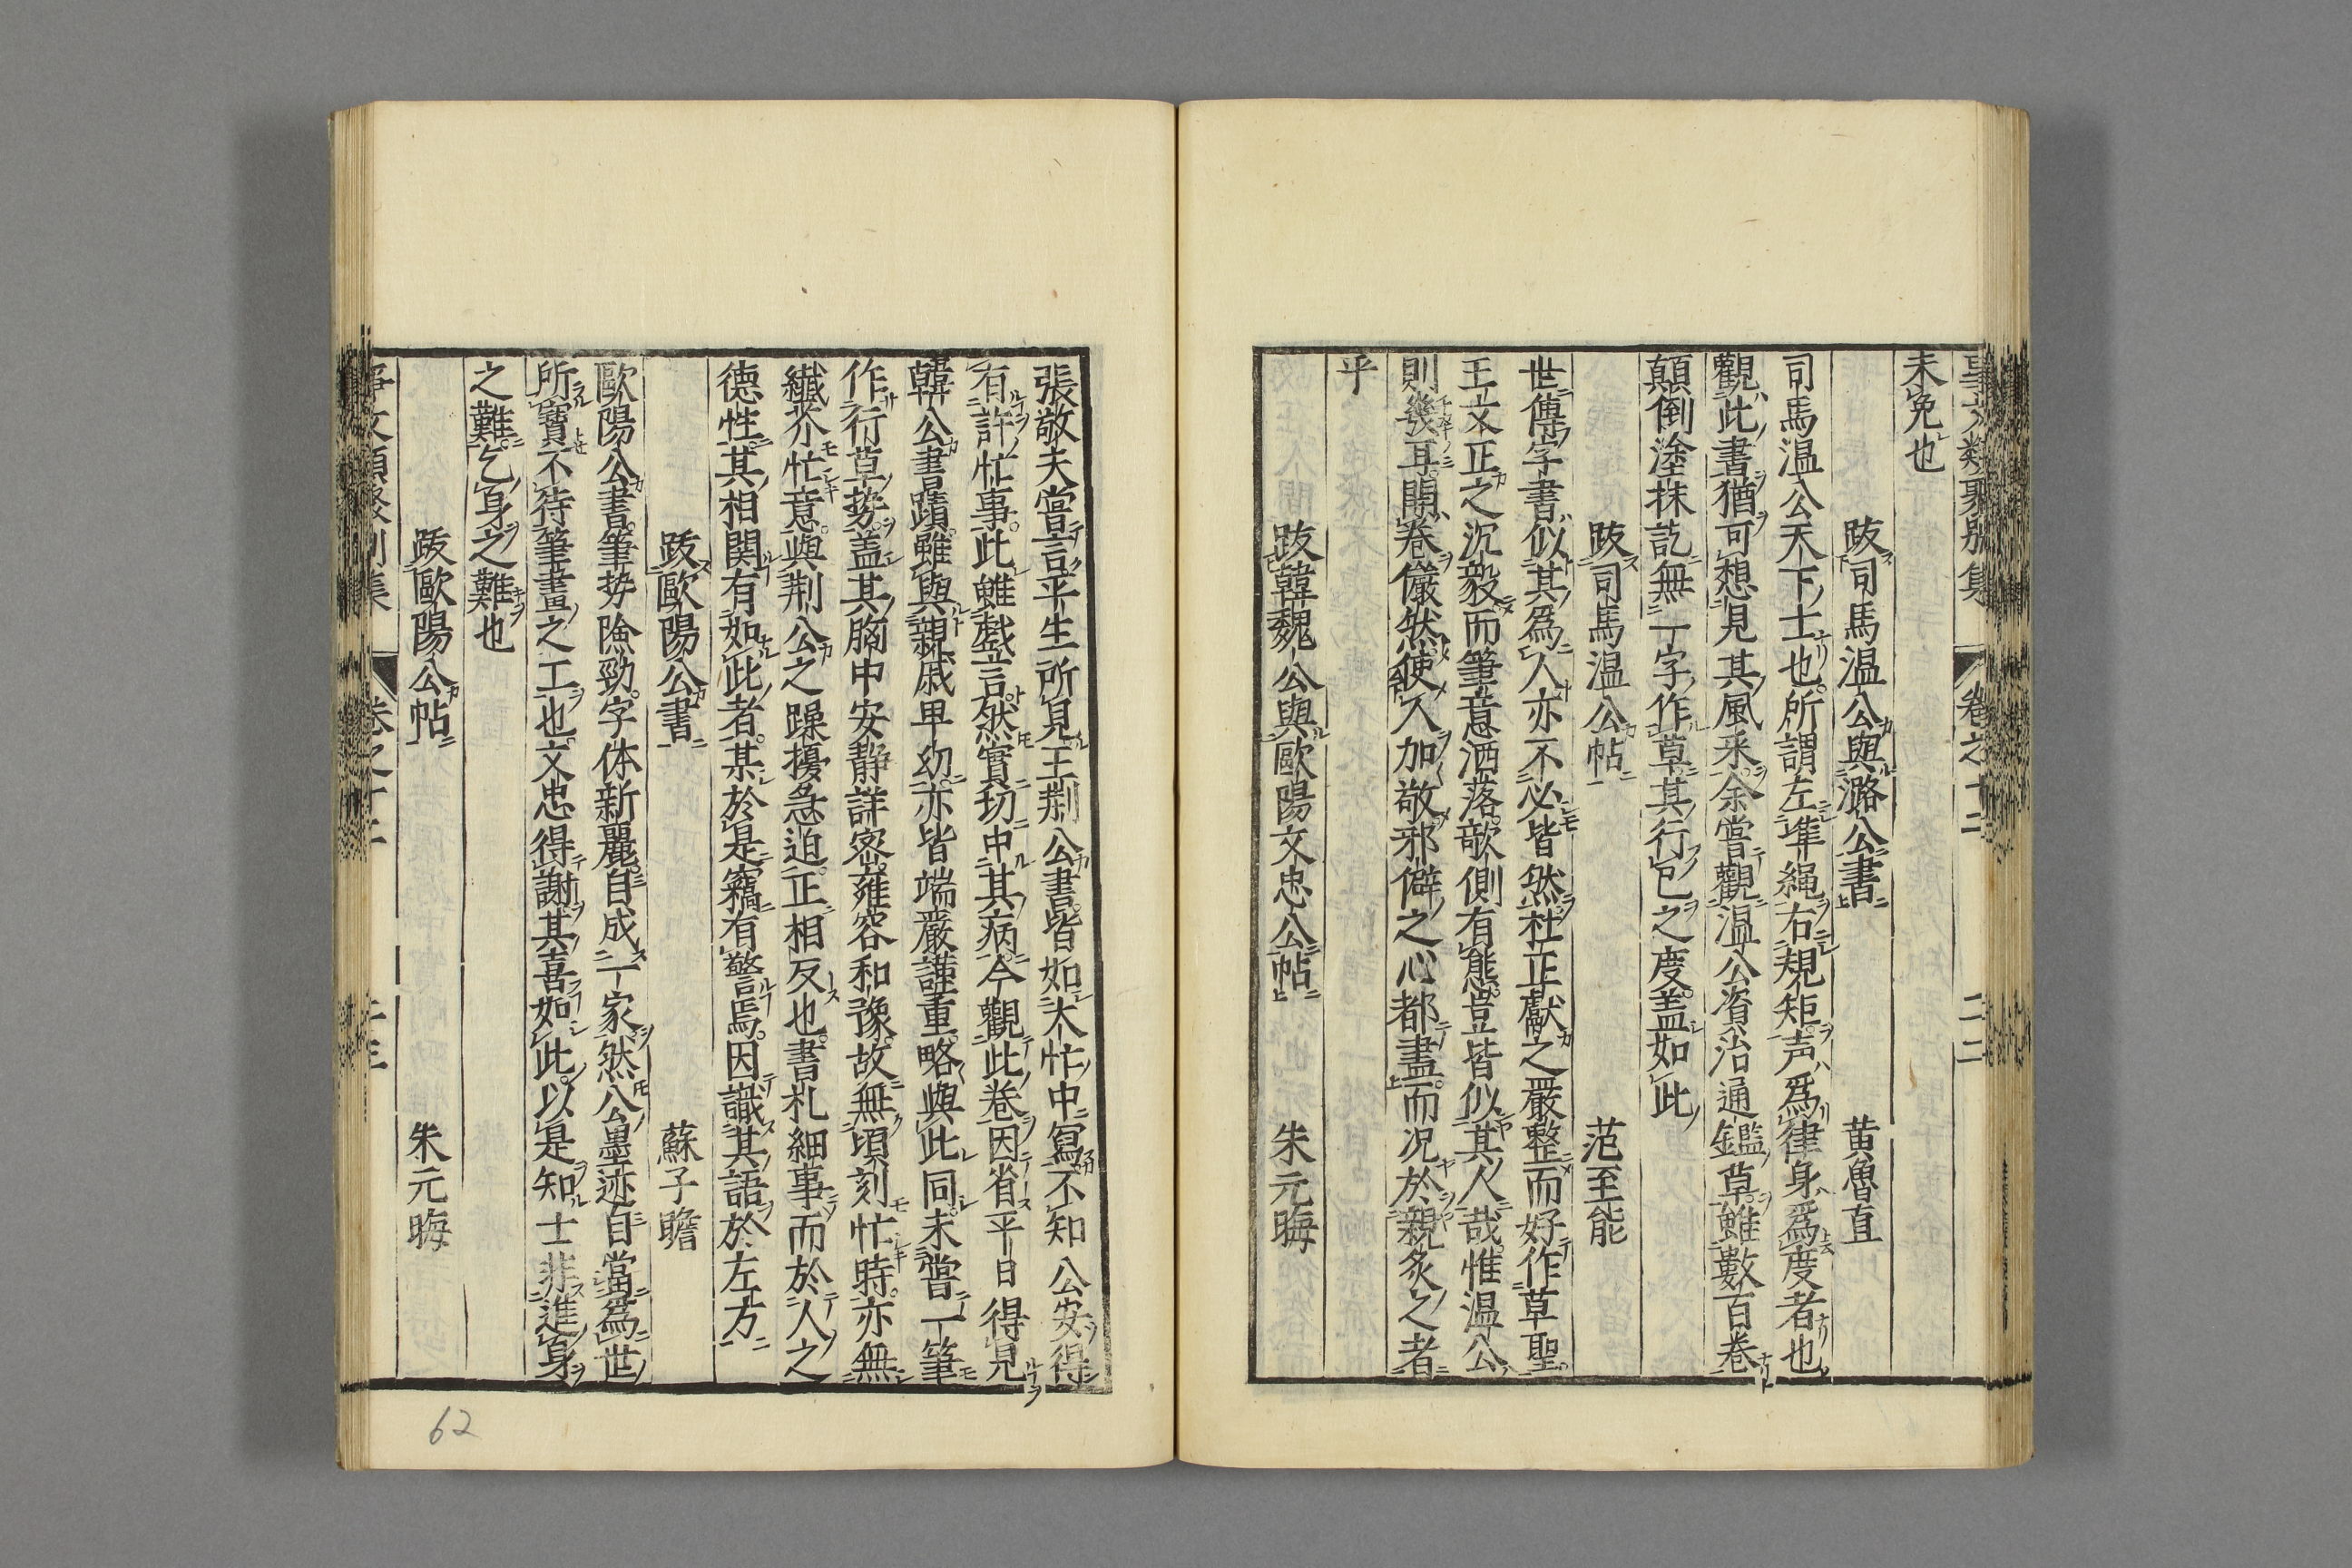 事文類聚別集 卷之十二 二二
未免也
跋司馬温公與潞公書 黄魯直
司馬温公天下士也所謂左準繩右規矩声爲律身爲度者也
觀此書猶可想見其風采余嘗觀温公資治通鑑草雖數百卷
顛倒塗抹訖無一字作草其行已之度盖如此
跋司馬温公帖 范至能
世傳字書似其爲人亦不必皆然杜正獻之嚴整而好作草聖
王文正之沉毅而筆意洒落欹側有態豈皆似其人哉惟温公
則幾耳開卷儼然使人加敬邪僻之心都盡而况於親炙之者
乎
跋韓魏公與歐陽文忠公帖 朱元晦
張敬夫嘗言平生所見王荆公書皆如大忙中寫不知公安得
有許忙事此雖戲言然實切中其病今觀此卷因省平日得見
韓公書蹟雖與親戚卑幼亦皆端嚴謹重略與此同未嘗一筆
作行草势盖其胸中安靜詳密雍容和豫故無頃刻忙時亦無
纎芥忙意與荆公之躁擾急迫正相反也書札細事而於人之
德性其相関有如此者某於是竊有警焉因識其語於左方
跋歐陽公書 蘇子瞻
歐陽公書筆势險勁字体新麗自成一家然公墨迹自當爲世
所寶不待筆畫之工也文忠得謝其喜如此以是知士非進身
之難乞身之難也
跋歐陽公帖 朱元晦
事文類聚別集 卷之十二 二三
62